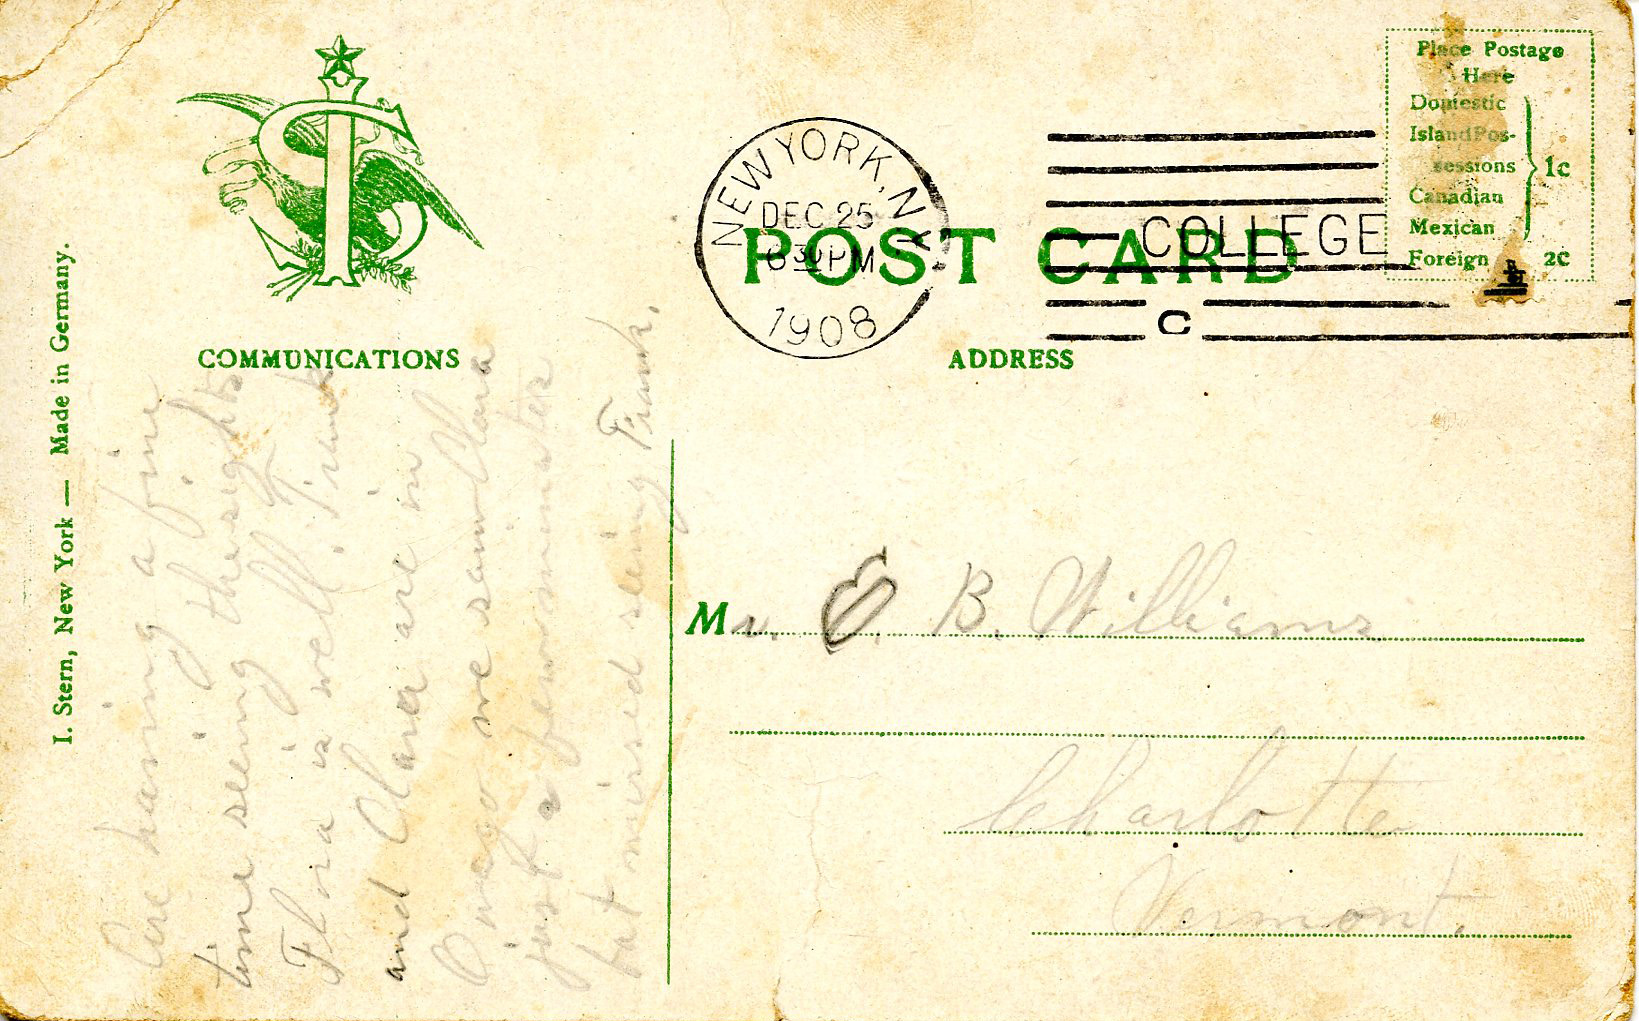 Place Postage
Here
Domestic
Island Pos-
sessions
Canadian
Mexican
1c
Foreign 2c
NEW YORK, N.Y.
DEC 25
6 30 PM
1908
COLLEGE
C
POST CARD
COMMUNICATIONS
ADDRESS
I. Stern, New York — Made in Germany.
Are having a fine
time seeing the sights
Flora is well. Frank
and Clara are in
Owego we saw Clara
just a few minutes
but missed seeing Frank.
Mr. B. Williams
Charlotte
Vermont.